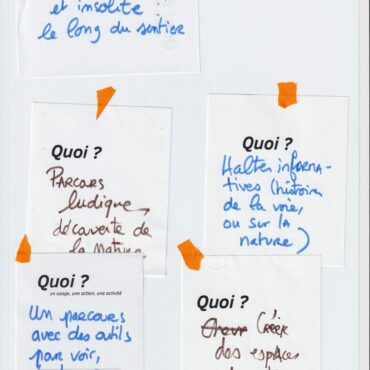 et insolite
le long du sentier
Quoi ?
PARCOURS
ludique,
découverte de
la nature
Quoi ?
Haltes informa-
tives (histoire
de la voie,
ou sur la
nature)
Quoi ?
un usage, une action, une activité
Un parcours
avec des outils
pour voir,
Quoi ?
Créer
des espaces